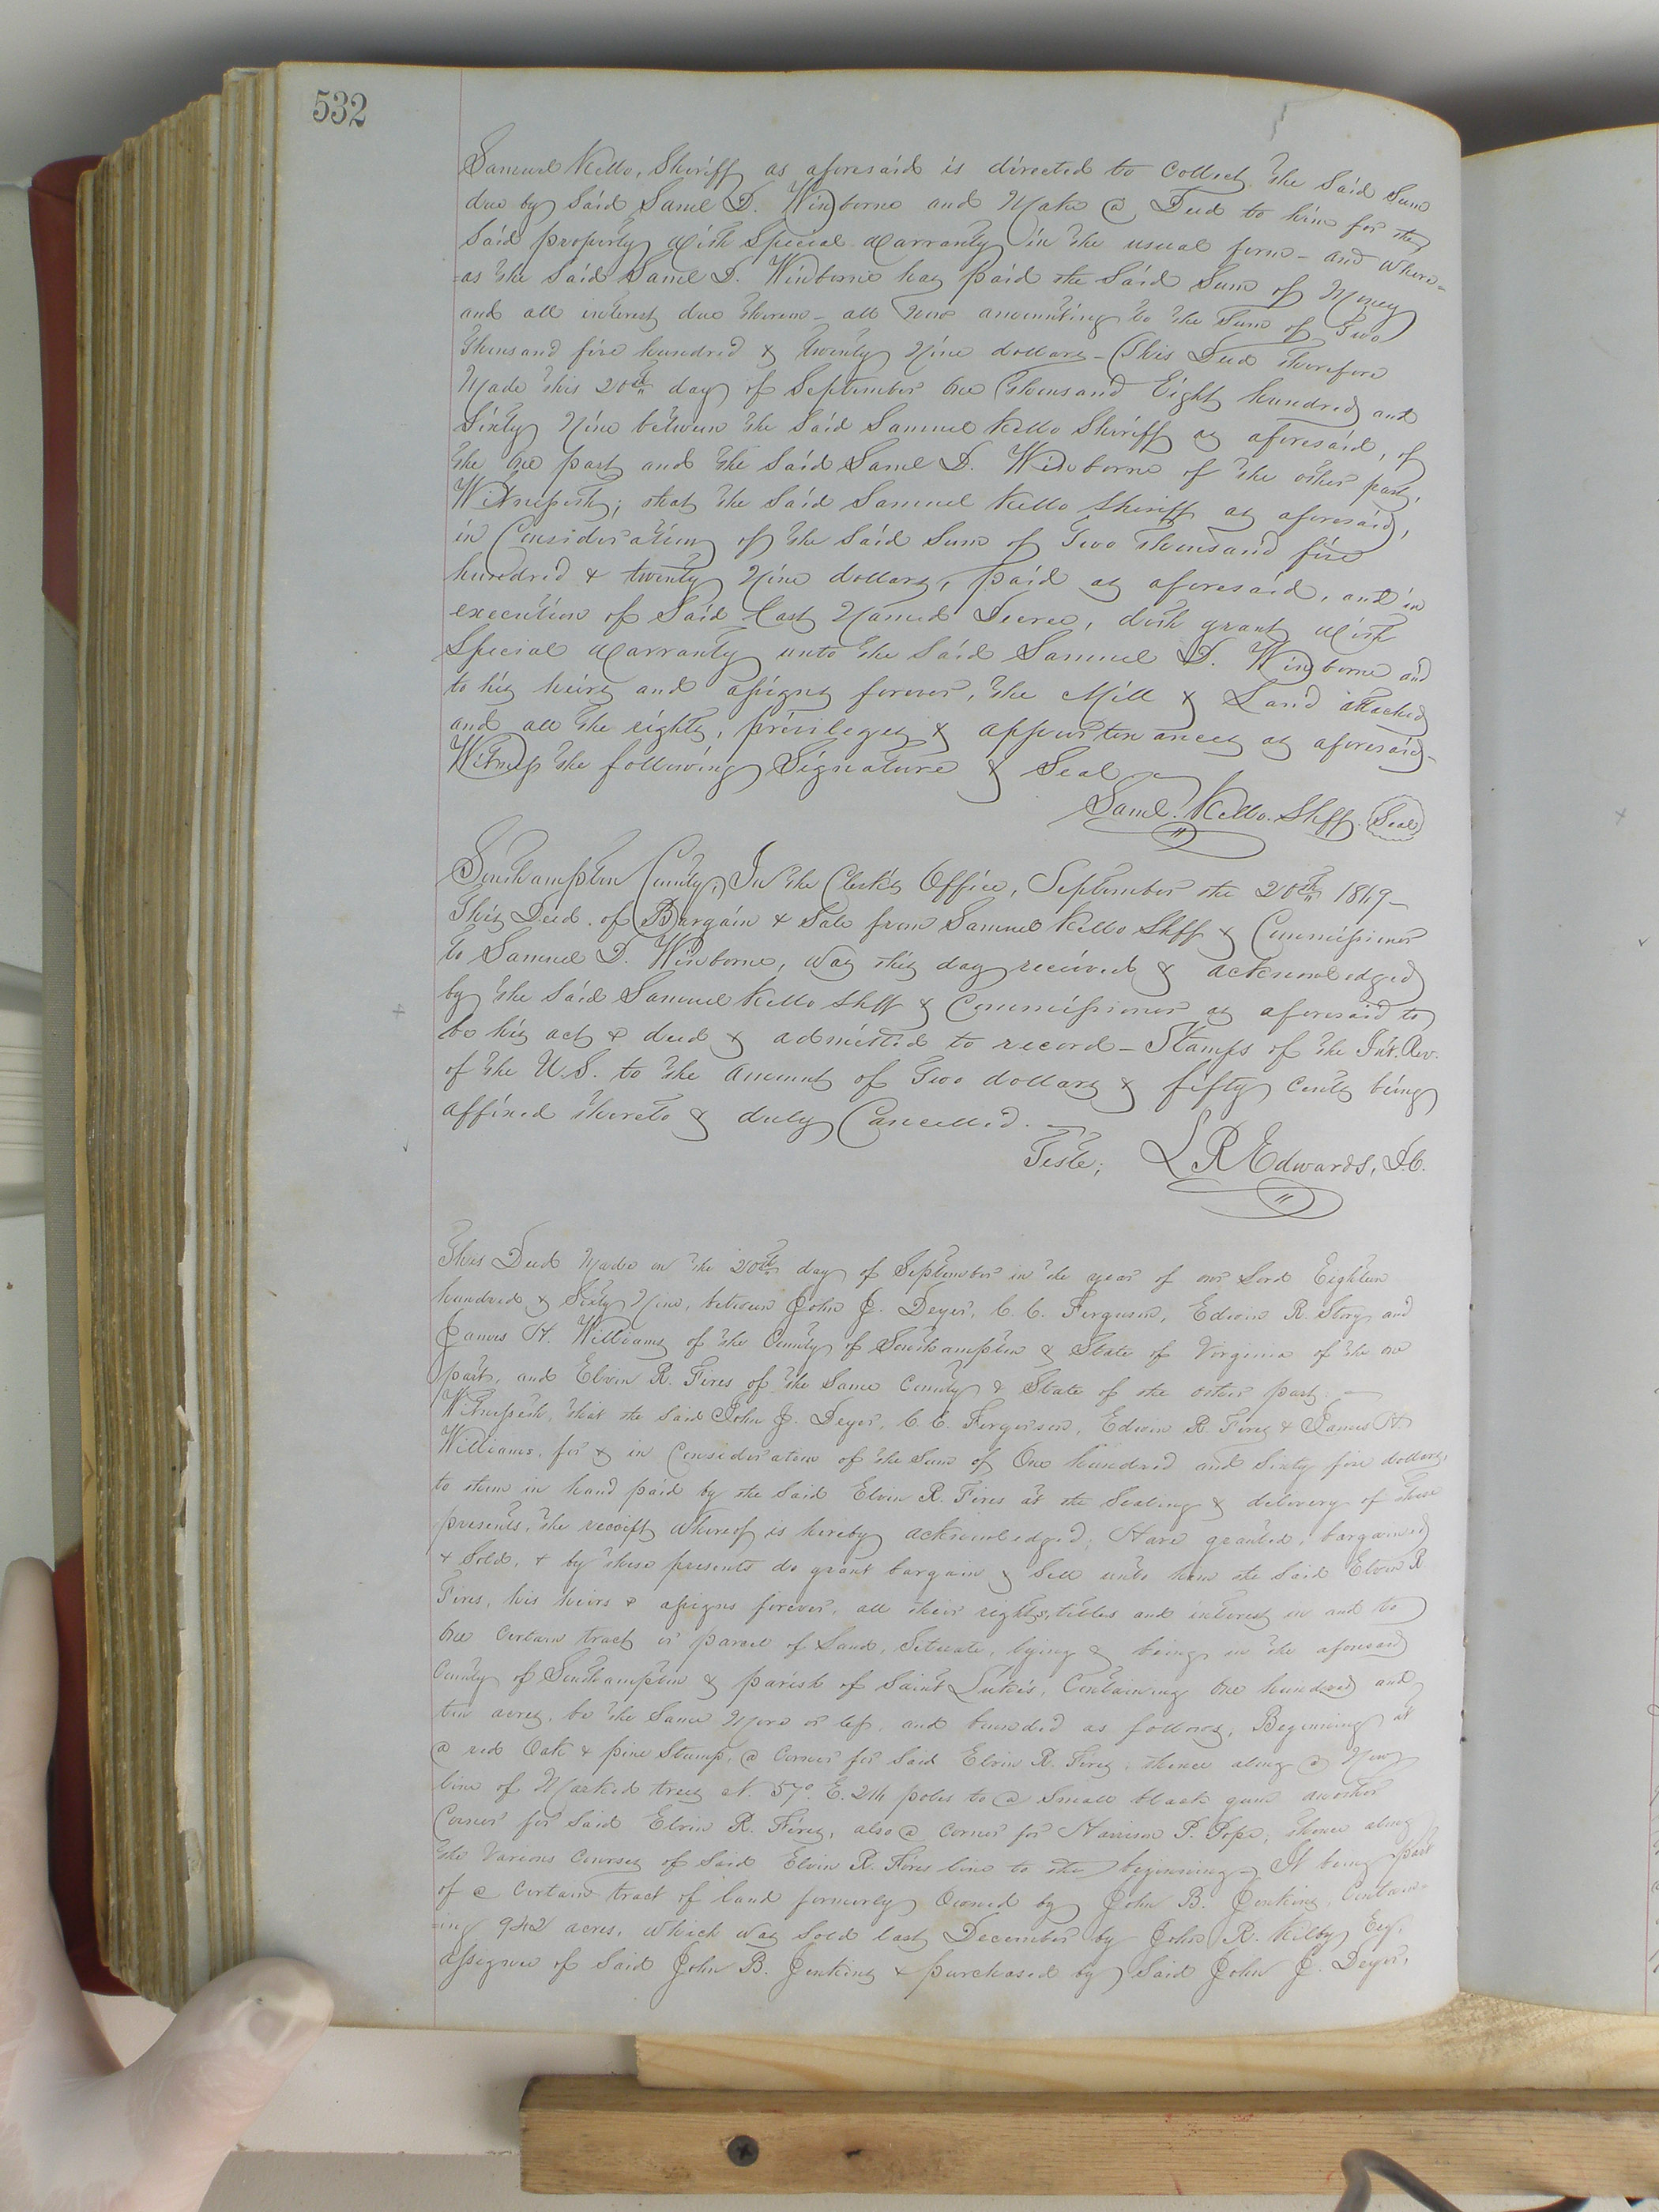 532
Samuel Kello, Sheriff as aforesaid is directed to Collect the Said Sum
due by Said Saml D. Winborne and Make a Deed to him for the
Said property with Special Warranty in the usual form - and where-
=as the Said Saml D. Winborne has paid the Said Sum of Money
and all interest due thereon - all now amounting to the Sum of Two
Thousand five hundred & twenty Nine dollars - This Deed therefore
Made this 20th day of September One Thousand Eight hundred and
Sixty Nine between the Said Samuel Kello Sheriff as aforesaid, of
the One part and the Said Saml D. Winborne of the other part,
Witnesseth; that the Said Samuel Kello Sheriff as aforesaid,
in Consideration of the Said Sum of Two Thousand five
hundred & twenty Nine dollars, paid as aforesaid, and in
execution of Said last Named Decree, doth grant with
Special Warranty unto the Said Samuel D. Winborne and
to his heirs and assigns forever, the Mill & Land attached
and all the rights, privileges & appurtenances as aforesaid-
Witness the following Signature & Seal
Saml. Kello. Shff. (Seal)
Southampton County; In the Clerk's Office, September the 20th 1869-
This Deed of Bargain & Sale from Samuel Kello Shff & Commissioner
to Samuel D. Winborne, was this day received & acknowledged
by the Said Samuel Kello Shff & Commissioner as aforesaid to
be his act & deed & admitted to record - Stamps of the Int. Rev.
of the U.S. to the Amount of Two dollars & fifty Cents being
affixed thereto & duly Cancelled.
Teste; L R Edwards, D.C.
This Deed Made on the 20th day of September in the year of our Lord Eighteen
hundred & Sixty Nine, between John J. Deyer, C. C. Ferguson, Edwin R. Story and
James H. Williams of the County of Southampton & State of Virginia of the one
part, and Elvin R. Fires of the Same County & State of the other part -
Witnesseth, that the said John J. Deyer, C. C. Fergerson, Edwin R. Fires & James H
Williams, for & in Consideration of the Sum of One hundred and Sixty five dollars,
to them in hand paid by the Said Elvin R. Fires at the Sealing & delivery of these
presents, the receipt whereof is hereby acknowledged; Have granted, bargained
& Sold, & by these presents do grant bargain & Sell unto him the Said Elvin R
Fires, his heirs & assigns forever, all their rights, titles and interest in and to
One Certain tract or parcel of Land, Situate, lying & being in the aforesaid
County of Southampton & parish of Saint Luke's, Containing One hundred and
ten acres, be the Same More or less, and bounded as follows; Beginning at
a red Oak & pine Stump, a Corner for Said Elvin R. Fires, thence along a New
line of Marked trees N. 57°. E. 214 poles to a Small black gum another
Corner for Said Elvin R. Fires, also a Corner for Harrison P. Pope, thence along
the Various Courses of Said Elvin R. Fires line to the beginning - It being part
of a Certain tract of land formerly Owned by John B. Jenkins, Contain-
=ing 942 acres, which was Sold last December by John R. Kilby, Esq.
assignee of Said John B. Jenkins & purchased by Said John J. Deyer,